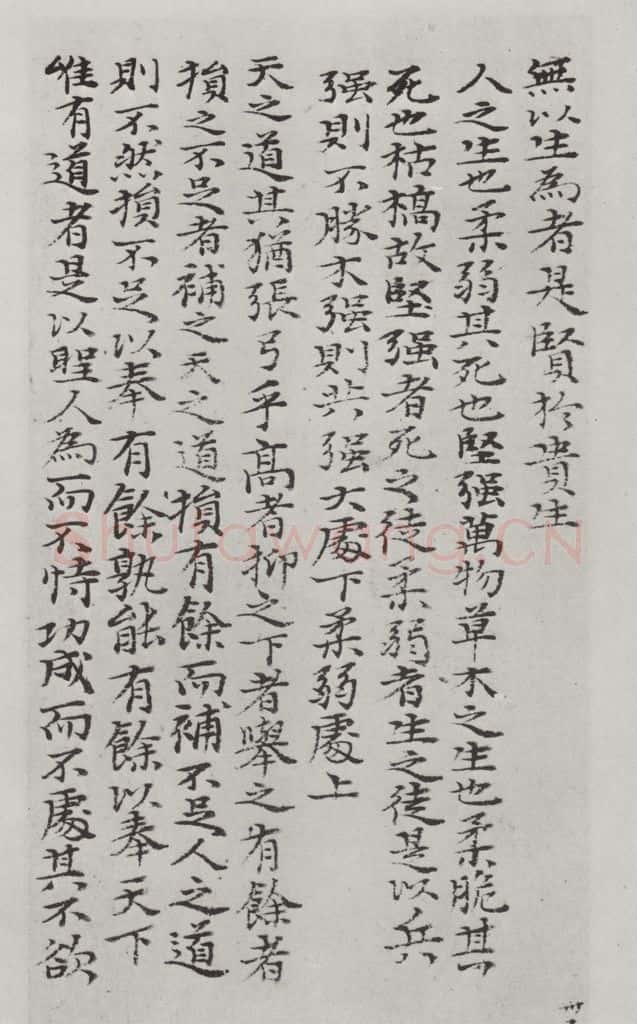 無以生為者是賢於貴生
人之生也柔弱其死也堅强萬物草木之生也柔脆其
死也枯槁故堅强者死之徒柔弱者生之徒是以兵
强則不勝木强則共强大處下柔弱處上
天之道其猶張弓乎高者抑之下者舉之有餘者
損之不足者補之天之道損有餘而補不足人之道
則不然損不足以奉有餘孰能有餘以奉天下
唯有道者是以聖人為而不恃功成而不處其不欲
Shufawang.CN